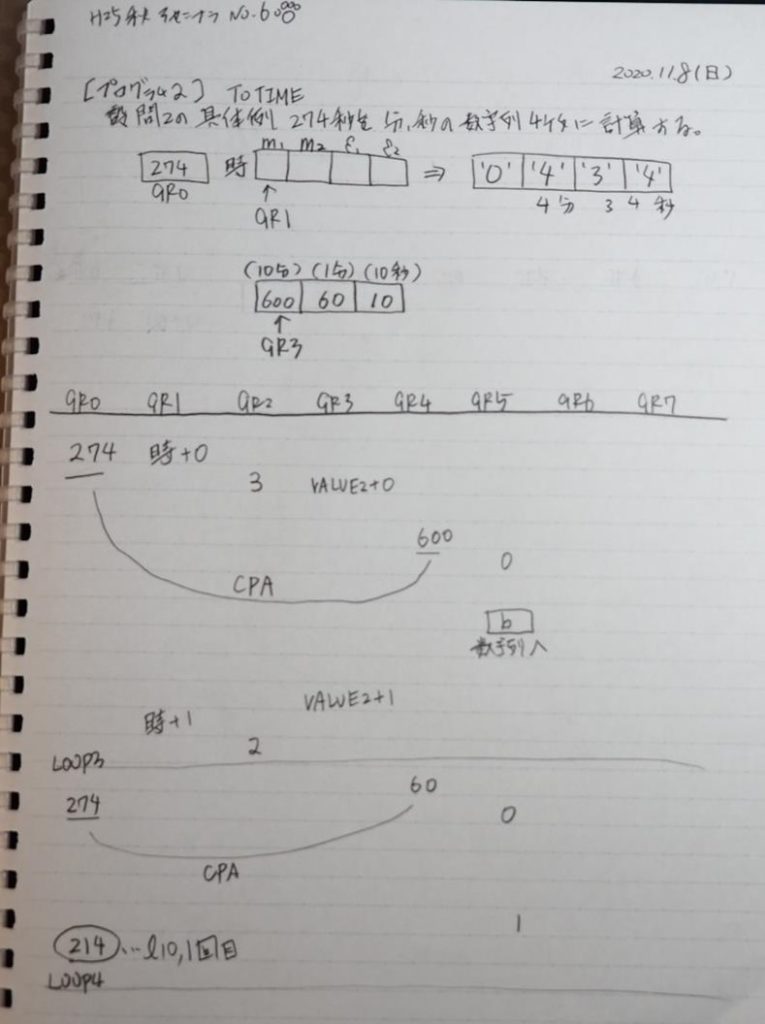 H25秋 No.6
2020.11.8(日)
[プログラム2] TOTIME
設問2の具体例 274秒を分,秒の数字列4ケタに計算する。
m1 m2 s1 s2
274 時 ⇒ '0' '4' '3' '4'
GR0 ↑ 4分 34秒
GR1
(10分) (1分) (10秒)
600 60 10
↑
GR3
GR0 GR1 GR2 GR3 GR4 GR5 GR6 GR7
274 時+0
3 VALUE2+0
600
0
CPA
b
数字列へ
VALUE2+1
時+1
2
LOOP3
60
274
0
CPA
1
214 …l10,1回目
LOOP4